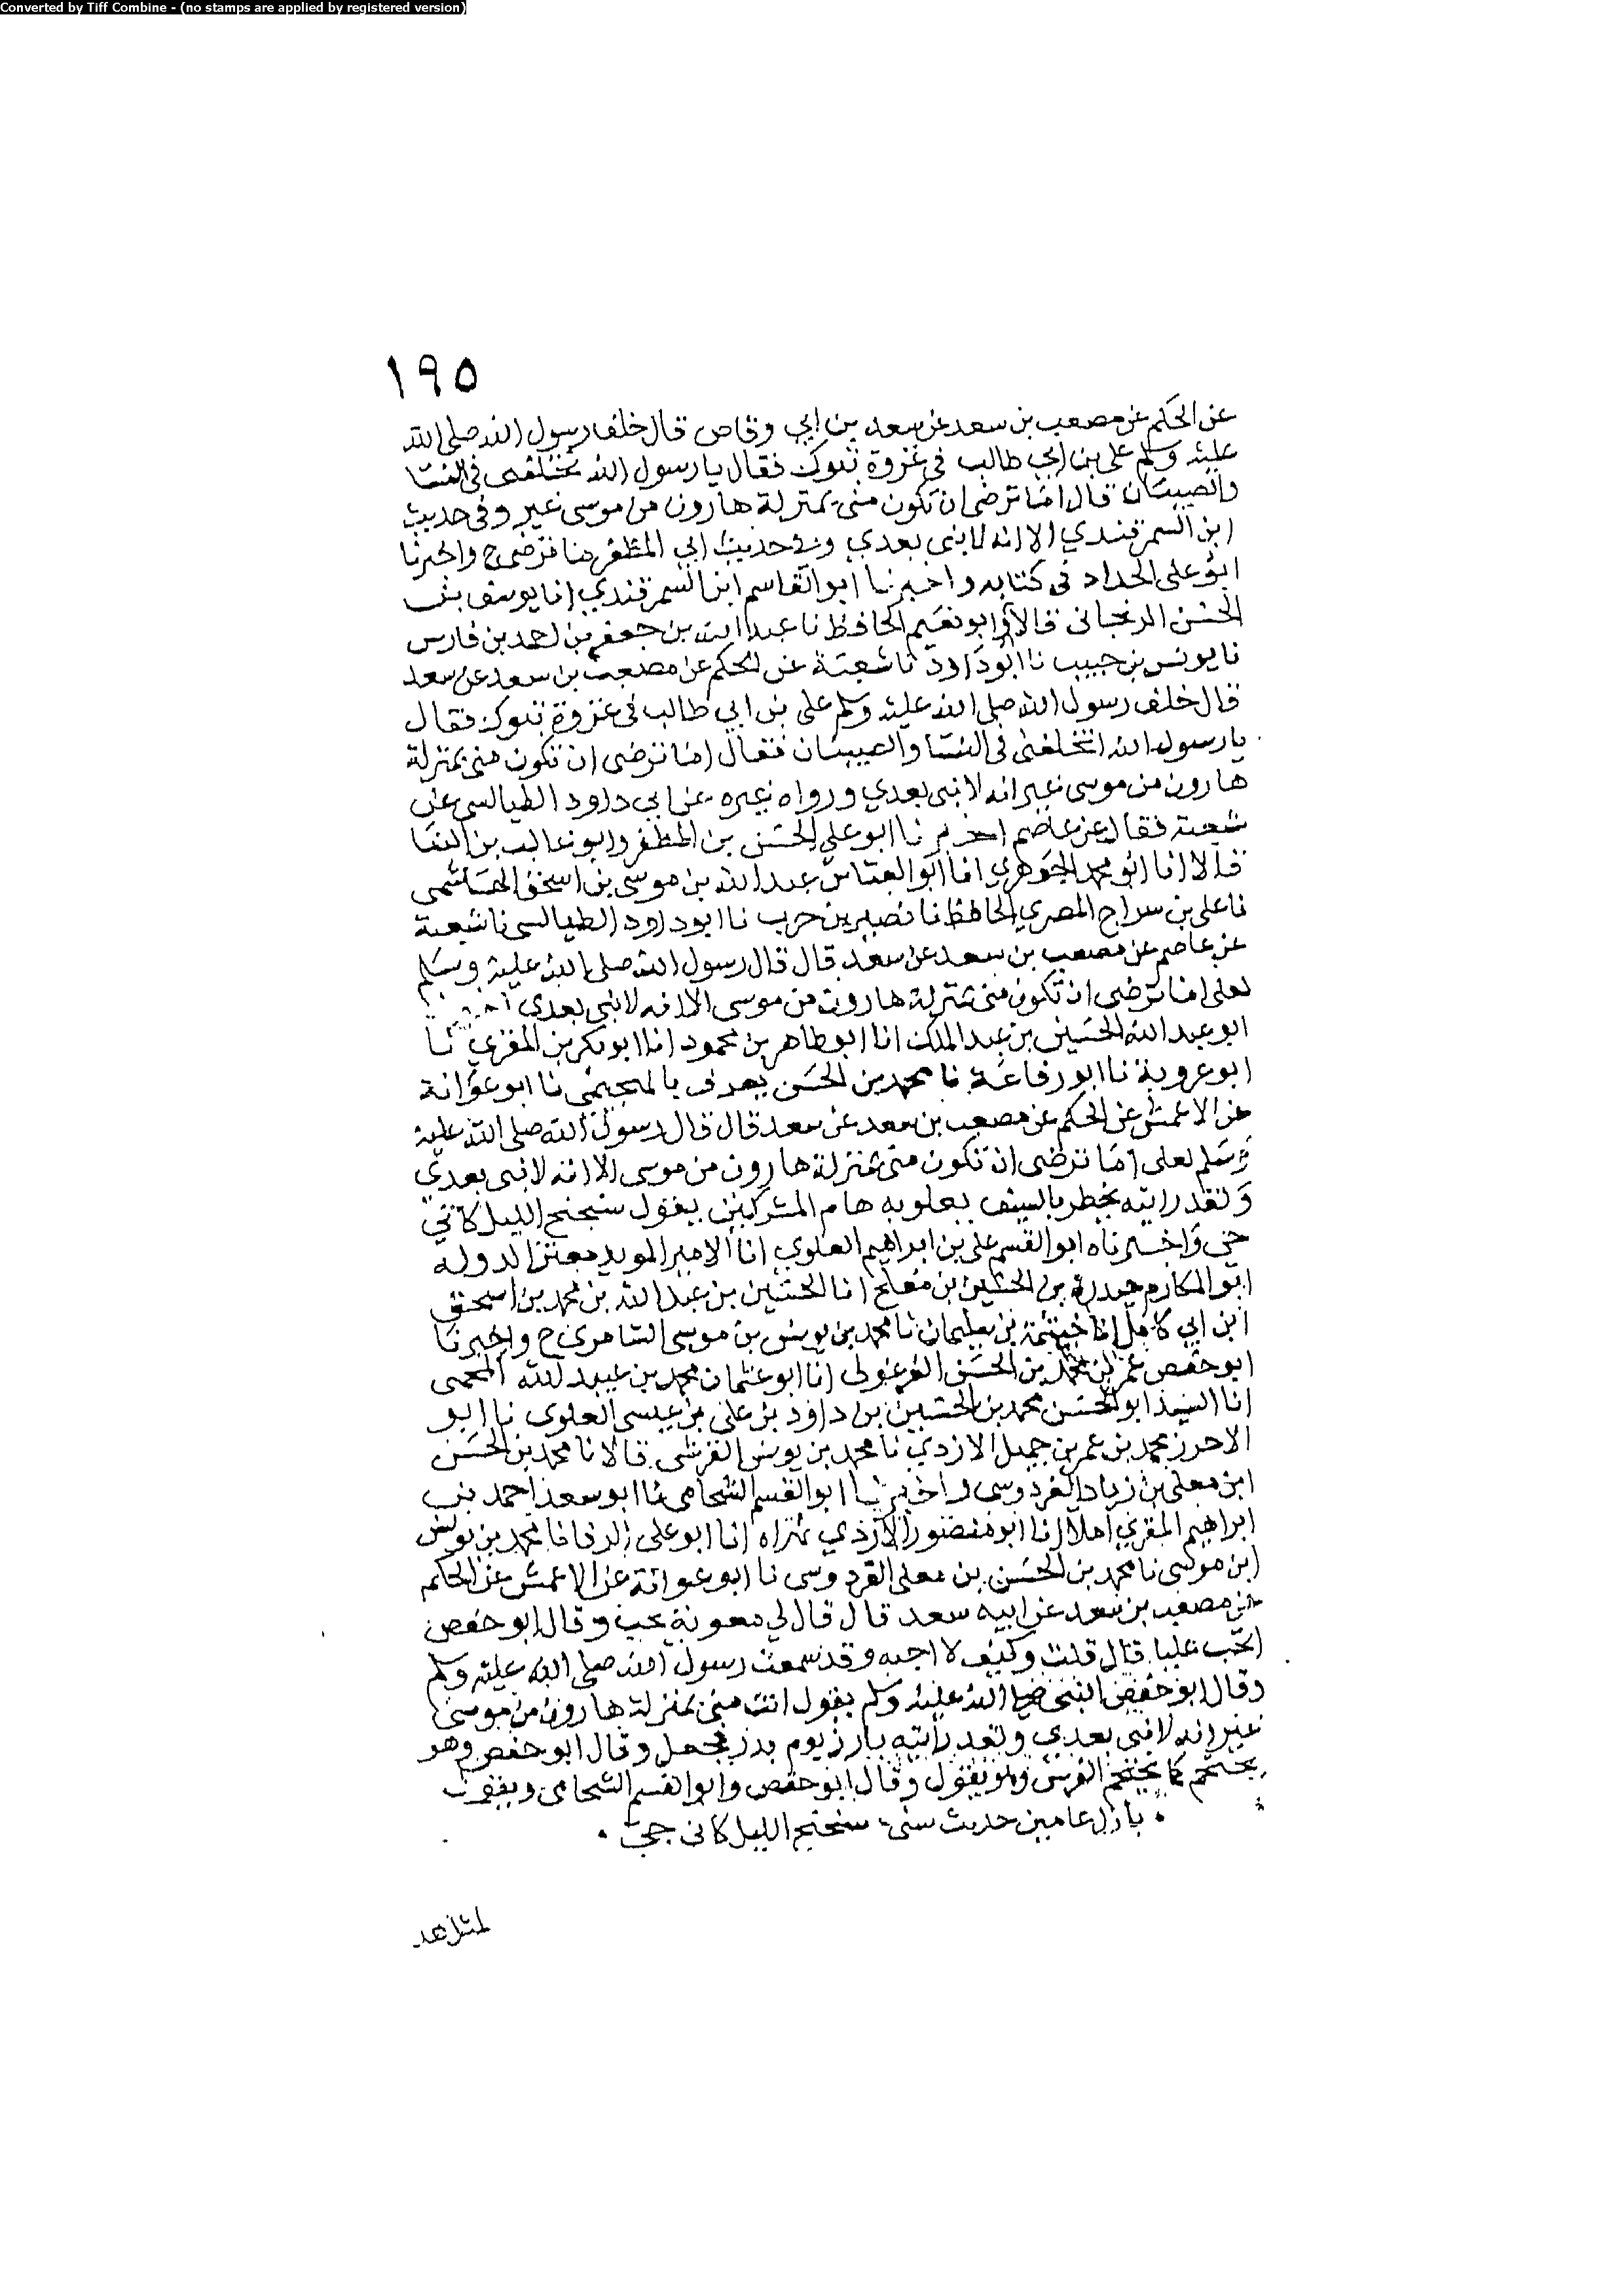 Converted by Tiff Combine - (no stamps are applied by registered version)
١٩٥
عن الحكم عن مصعب بن سعد عن سعد بن ابي وقاص قال خلف رسول الله صلى الله
عليه وسلم على بن ابي طالب في غزوة تبوك فقال يا رسول الله تخلفنى فى النسا
والصبيان قال اما ترضى ان تكون منى بمنزلة هارون من موسى غير وفى حديث
ابن السمرقندي الا انه لا نبى بعدي وفى حديث ابي المظفر منا ترضى ح واخبرنا
ابو على الحداد فى كتابه واخبرنا ابو القاسم ابن السمرقندي انا يوسف بن
الحسن الزنجانى قالا نا ابو نعيم الحافظ نا عبد الله بن جعفر بن احمد بن فارس
نا يونس بن حبيب نا ابو داود نا شعبة عن الحكم عن مصعب بن سعد عن سعد
قال خلف رسول الله صلى الله عليه وسلم على بن ابي طالب فى غزوة تبوك فقال
يا رسول الله اتخلفنى فى النسا والصبيان فقال اما ترضى ان تكون منى بمنزلة
هارون من موسى غير انه لا نبى بعدي ورواه غيره عن ابي داود الطيالسى عن
شعبة فقال عن عاصم اخبرنا ابو على الحسن بن المظفر وابو غالب بن البنا
قالا انا ابو محمد الجوهري انا ابو العباس عبد الله بن موسى بن اسحق الهاشمى
نا على بن سراج المصري الحافظ نا نصير بن حرب نا ابو داود الطيالسى نا شعبة
عن عاصم عن مصعب بن سعد عن سعد قال قال رسول الله صلى الله عليه وسلم
لعلى اما ترضى ان تكون منى بمنزلة هارون من موسى الا انه لا نبى بعدى
ابو عبد الله الحسين بن عبد الملك انا ابو طاهر بن محمود انا ابو بكر بن المقري نا
ابو عروبة نا ابو رفاعة نا محمد بن الحسن يعرف بالهجيمى نا ابو عوانة
عن الاعمش عن الحكم عن مصعب بن سعد عن سعد قال قال رسول الله صلى الله عليه
وسلم لعلى اما ترضى ان تكون منى بمنزلة هارون من موسى الا انه لا نبى بعدي
ولقد رايته يخطر بالسيف يعلو به هام المشركين يقول سنحنح الليل كأني
جني واخبرناه ابو القسم على بن ابراهيم العلوي انا الامير المويد معتز الدولة
ابو المكارم حيدرة بن الحسين بن مفلح انا الحسين بن عبد الله بن محمد بن اسحق
ابن ابي كامل انا خيثمة بن سليمان نا محمد بن يونس بن موسى السامرى ح واخبرنا
ابو حفص عمر بن محمد بن الحسن الفرغولى انا ابو عثمان محمد بن عبيد الله المحمى
انا السيد ابو الحسن محمد بن الحسين بن داود بن على بن عيسى العلوى نا ابو
الاحرز محمد بن عمر بن جميل الازدي نا محمد بن يونس القرشى قالا نا محمد بن الحسن
ابن معلى بن زياد الفردوسى واخبرنا ابو القسم الشحامى نا ابو سعد احمد بن
ابراهيم المقري املا انا ابو منصور الازدي بهراه انا ابو على الرفا نا محمد بن يونس
ابن موسى نا محمد بن الحسن بن معلى القردوسى نا ابو عوانة عن الاعمش عن الحكم
عن مصعب بن سعد عن ابيه سعد قال قال لي معوية تحب وقال ابو حفص
اتحب عليا قال قلت وكيف لا احبه وقد سمعت رسول الله صلى الله عليه وسلم
وقال ابو حفص النبى صلى الله عليه وسلم يقول انت منى بمنزلة هارون من موسى
غير انه لا نبى بعدي ولقد رأيته بارز يوم بدر فجعل وقال ابو حفص وهو
يحمحم كما يحمحم الفرس وهو يقول وقال ابو حفص وابو القسم الشحامى ويقول
بازل عامين حديث سنى سنحنح الليل كانى جنى
لمثل هد